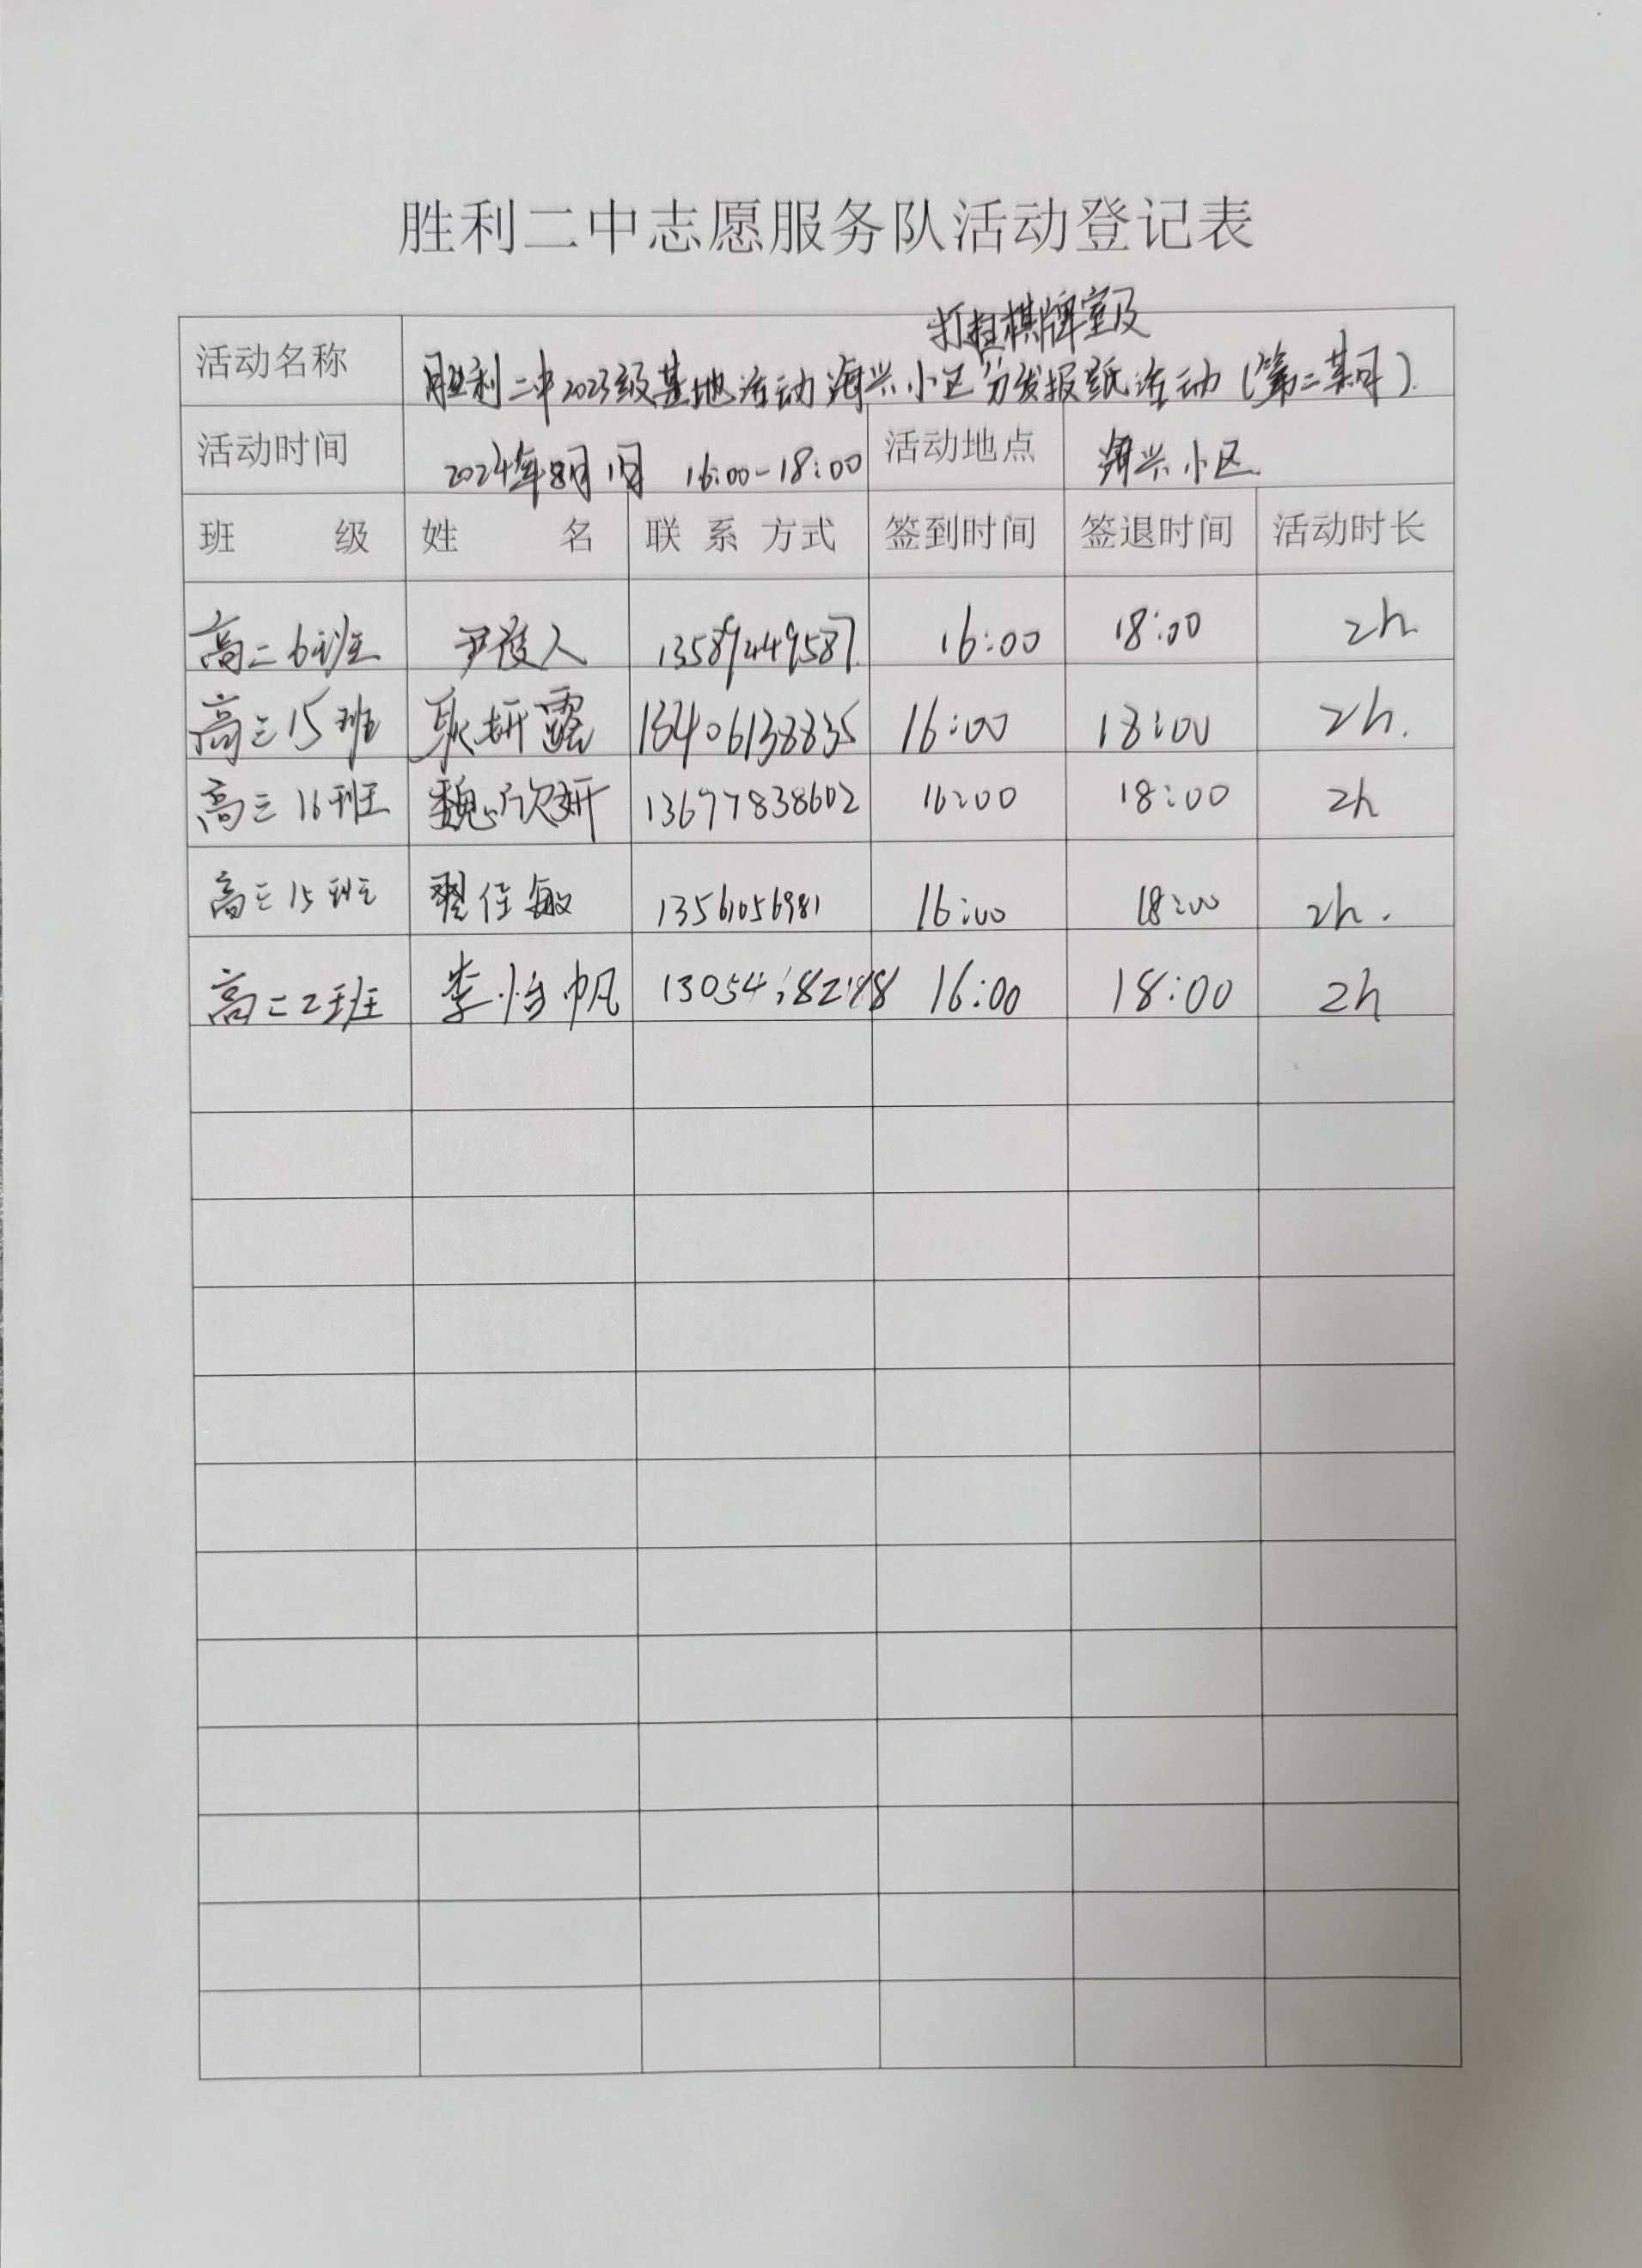 胜利二中志愿服务队活动登记表
打扫棋牌室及
活动名称 胜利二中2023级基地活动海兴小区分发报纸活动(第二期).
活动时间 2024年8月1日 16:00-18:00 活动地点 海兴小区.
班 级 姓 名 联系方式 签到时间 签退时间 活动时长
高二6班 尹 人 13589449587 16:00 18:00 2h
高三15班 耿妍露 16:00 18:00 2h.
高三16班 魏欣妍 13677838602 16:00 18:00 2h
高三15班 翟佳敏 13561056981 16:00 18:00 2h.
高二2班 李怡帆 16:00 18:00 2h